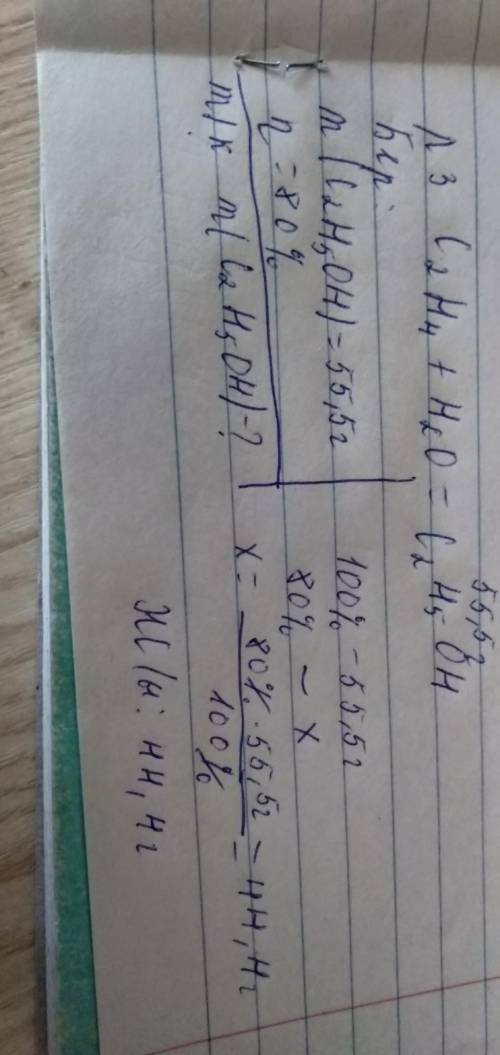 №3 C₂H₄ + H₂O = C₂H₅OH
55,5г
Бер:
m(C₂H₅OH) = 55,5г
η = 80%
т/к m(C₂H₅OH) - ?
100% - 55,5г
80% - x
x = 80% · 55,5г / 100% = 44,4г
Ж/бы: 44,4г